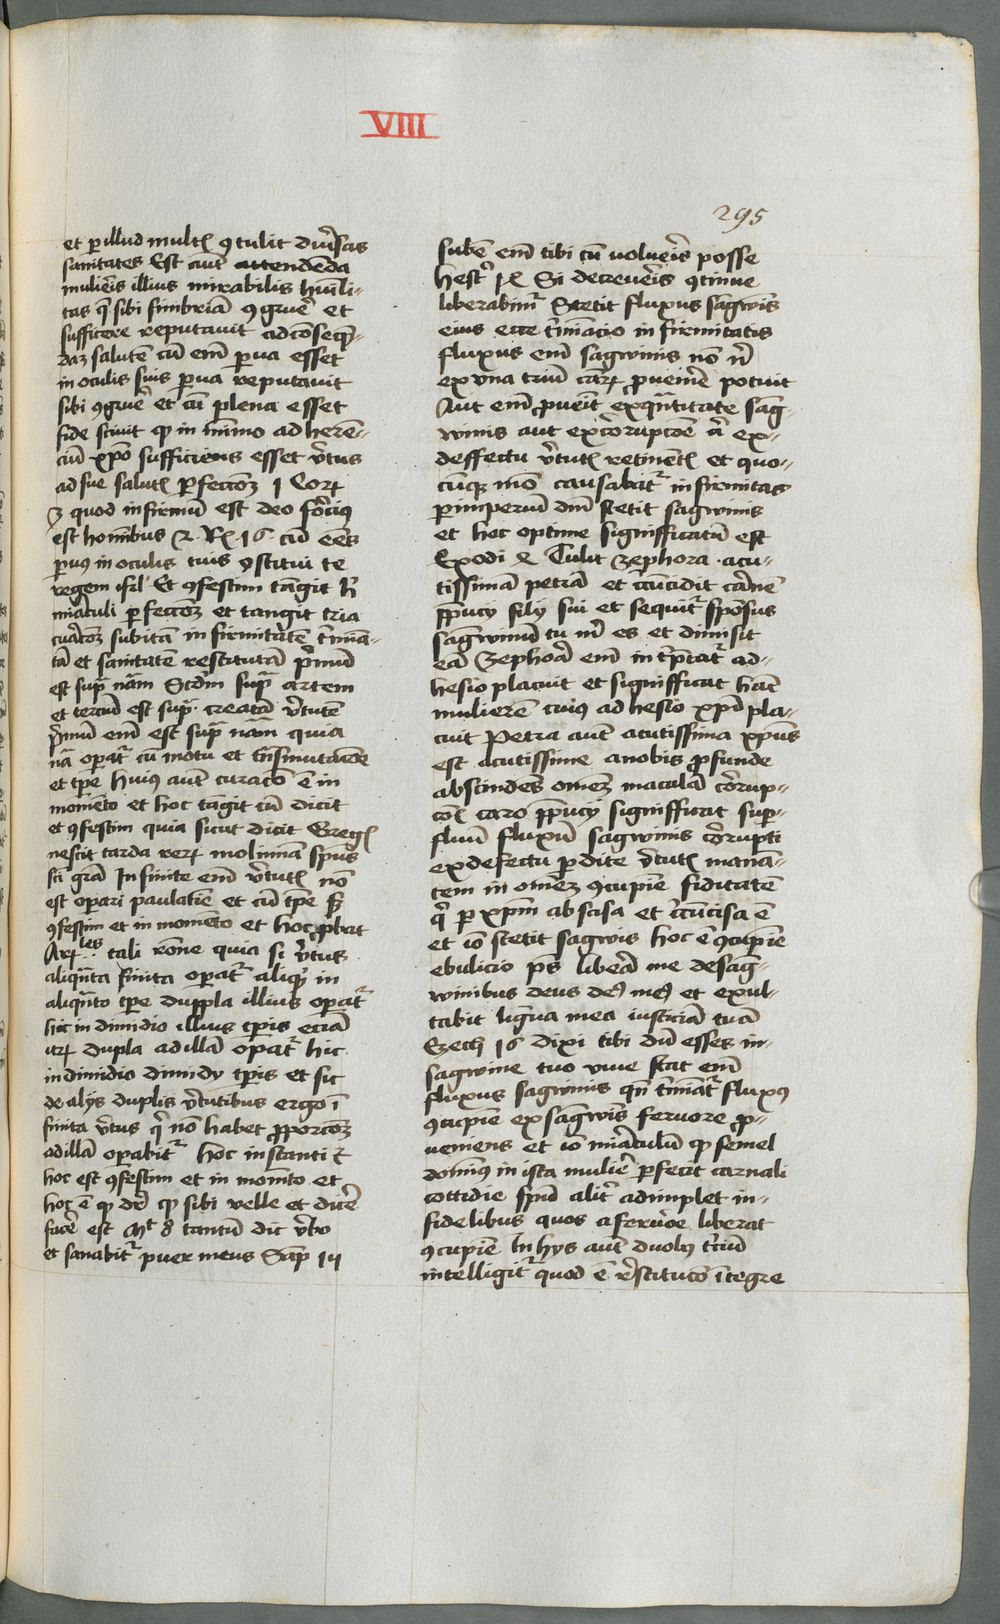 VIII
295
et p illud multꝭ ꝯtulit diu͛sas
sanitates Est aut͛ attendenda
mulier͛is illius mirabilis hūili-
tas q̄ sibi fimbriā ꝯgruer͛ et
sufficere reputauit ad cōseqn̄-
daȝ salutē cū em̄ ꝑua esset
in oculis suis ꝑua reputauit
sibi ꝯgruer͛ et cū plena esset
fide sciuit ꝙ in mīmo ad heren-
ciū xp̄o sufficiens esset v͛tus
ad sue salutꝭ ꝑfecc̄oȝ 1 Corꝝ
quod infirmū est deo forciꝰ
est hominibus Rꝭ 16 cū ees
ꝑuꝰ in oculis tuis ꝯstitui te
regem isrl̄ Et ꝯfestim tāgit
miāculi ꝑfecc̄oȝ et tangit tria
subitā infirmitatē t͛mīa-
tā et sanitatē restitutā p̄mū
est sup̄ nām Scd̄m sup̄ artem
et tercīū est sup̄ creatā v͛tutē
p̄mū em̄ est sup̄ nām quia
nā operat͛ cū motu et trāsmutac̄oe
et tp̄e huiꝰ aut͛ curac̄o ē in
momēto et hoc tāgit cū dicit
et ꝯfestim quia sicut dicit Gregꝰ
nescit tarda molimīa sp̄us
sc̄i grā Infinite em̄ v͛tutꝭ nō
est operari paulatīe et cū tp̄e sꝫ
ꝯfestim et in momēto et hoc ꝓbat
Arꝭles tali rōne quia si v͛tus
aliqn̄ta finita operat͛ aliqͥd in
aliqn̄to tp̄e duppla illius operat͛
hoc in dimidio illius tp̄is eciā
itꝝ dupla ad illā opat͛ hic
in dimidio dimidy tp̄is et sic
de alys duplis v͛tutibus ergo ī
finita v͛tus q̄ nō habet ꝓporc̄oȝ
ad illā operabit͛ hoc instanti
hoc est ꝯfestim et in momēto et
hoc ē ꝙ dr͛ ꝙ sibi velle et dicer͛
facer͛ est Mt 8 tantū dic v͛bo
et sanabit͛ puer meus Sap̄ 1ij
subē em̄ tibi cū volueris posse
Hest͛ Si decreueris ꝯtinue
liberabim͛ Stetit fluxus sagwīs
eius ecce t͛miacio infirmitatis
fluxus em̄ sagwinis nō
ex vna triū carꝝ ꝓuenire potuit
Aut em̄ ꝓueīt ex qn̄titate sag-
winis aut ex corrupc̄oe ex-
deffectu v͛tutꝭ retinentꝭ et quo-
cūqȝ mō causabat͛ infirmitas
ꝑ imperium dn̄i stetit sagwinis
et hoc optime signifficatū est
Exodi Tulit Zephora acu-
tissimā petrā et circūcidit carnē
p̄pucy fily sui et sequit͛ sponsus
sagwinum tu m̄ es et dimisit
eā Zephora em̄ int͛p̄tat͛ ad-
hesio placuit et signifficat hāc
mulierē cuiꝰ ad hesio xp̄o pla-
cuit Petra aut͛ acutissima xp̄us
est acutissime a nobis ꝓfunde
abscindēs omēȝ maculā corrup-
c̄oꝭ caro p̄pucy signifficat sup-
fluū fluxū sagwinis corrupti
ex defectu ꝑdite v͛tutꝭ manā-
tem in omēȝ ꝯcupīe fiditatē
q̄ ꝑ xp̄m abscisa et circūcisa ē
et iō stetit sagwis hoc ē ꝯcupīe
ebulicio p̄s libera me de sag-
winibus deus deꝰ meꝰ et exul-
tabit lingua mea iusticiā tuā
Ezech 16 dixi tibi dū esses in-
sagwine tuo viue stat em̄
fluxus sagwinis qn̄ t͛mīat͛ fluxꝰ
ꝯcupīe ex sagwīs feruore ꝓ-
ueniens et iō miāculū ꝙ semel
domīꝰ in ista mulier͛ ꝑfecit carnali
cottidie spūalit͛ adimplet in-
fidelibus quos a feruore liberat
ꝯcupīe In hys aut͛ duobꝰ t͛ciū
intelligit͛ quod ē r͛stitutio ītegre